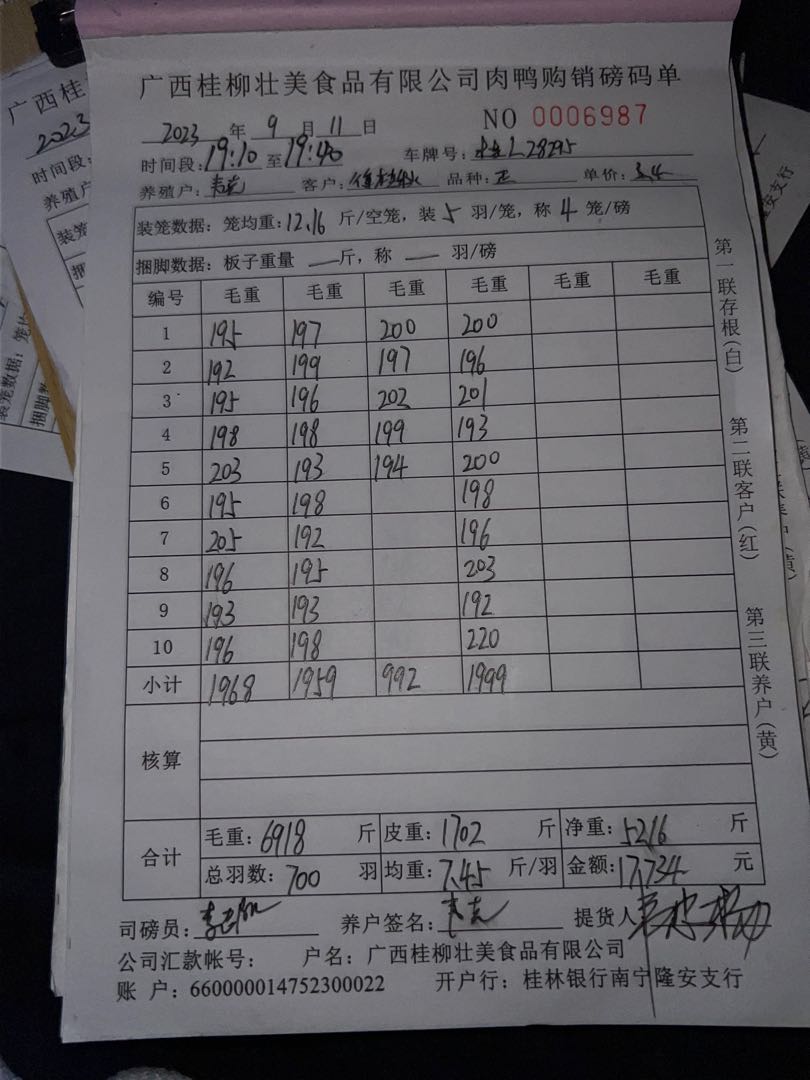 广西桂柳壮美食品有限公司肉鸭购销磅码单
2023 年 9 月 11 日 NO 0006987
时间段: 19:10 至 19:40 车牌号: L28295
养殖户: 客户: 品种: 正 单价: 3.4
装笼数据: 笼均重: 12.16 斤/空笼, 装 5 羽/笼, 称 4 笼/磅
捆脚数据: 板子重量 — 斤, 称 — 羽/磅
编号 毛重 毛重 毛重 毛重 毛重 毛重
1 195 197 200 200
2 192 199 197 196
3 195 196 202 201
4 198 198 199 193
5 203 193 194 200
6 195 198 198
7 205 192 196
8 196 195 203
9 193 193 192
10 196 198 220
小计 1968 1959 992 1999
核算
合计 毛重: 6918 斤 皮重: 1702 斤 净重: 5216 斤
总羽数: 700 羽 均重: 7.45 斤/羽 金额: 17,734 元
司磅员: 养户签名: 提货人
公司汇款帐号: 户名: 广西桂柳壮美食品有限公司
账 户: 660000014752300022 开户行: 桂林银行南宁隆安支行
第一联存根(白)
第二联客户(红)
第三联养户(黄)
广西桂
2023
时间段:
养殖户
装笼
捆脚